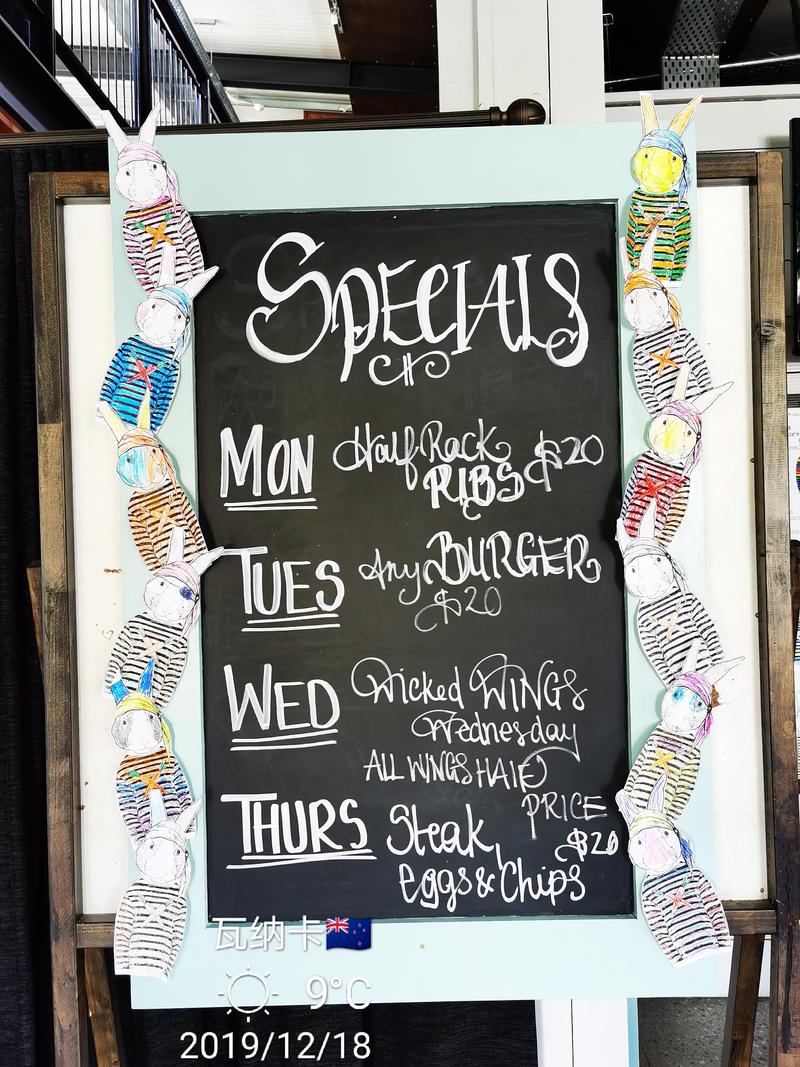 SPECIALS
MON Half Rack $20
RIBS
TUES Any BURGER
$20
WED Wicked WINGS
Wednesday
ALL WINGS HALF
PRICE
THURS Steak, $20
eggs & Chips
瓦纳卡
9°C
2019/12/18